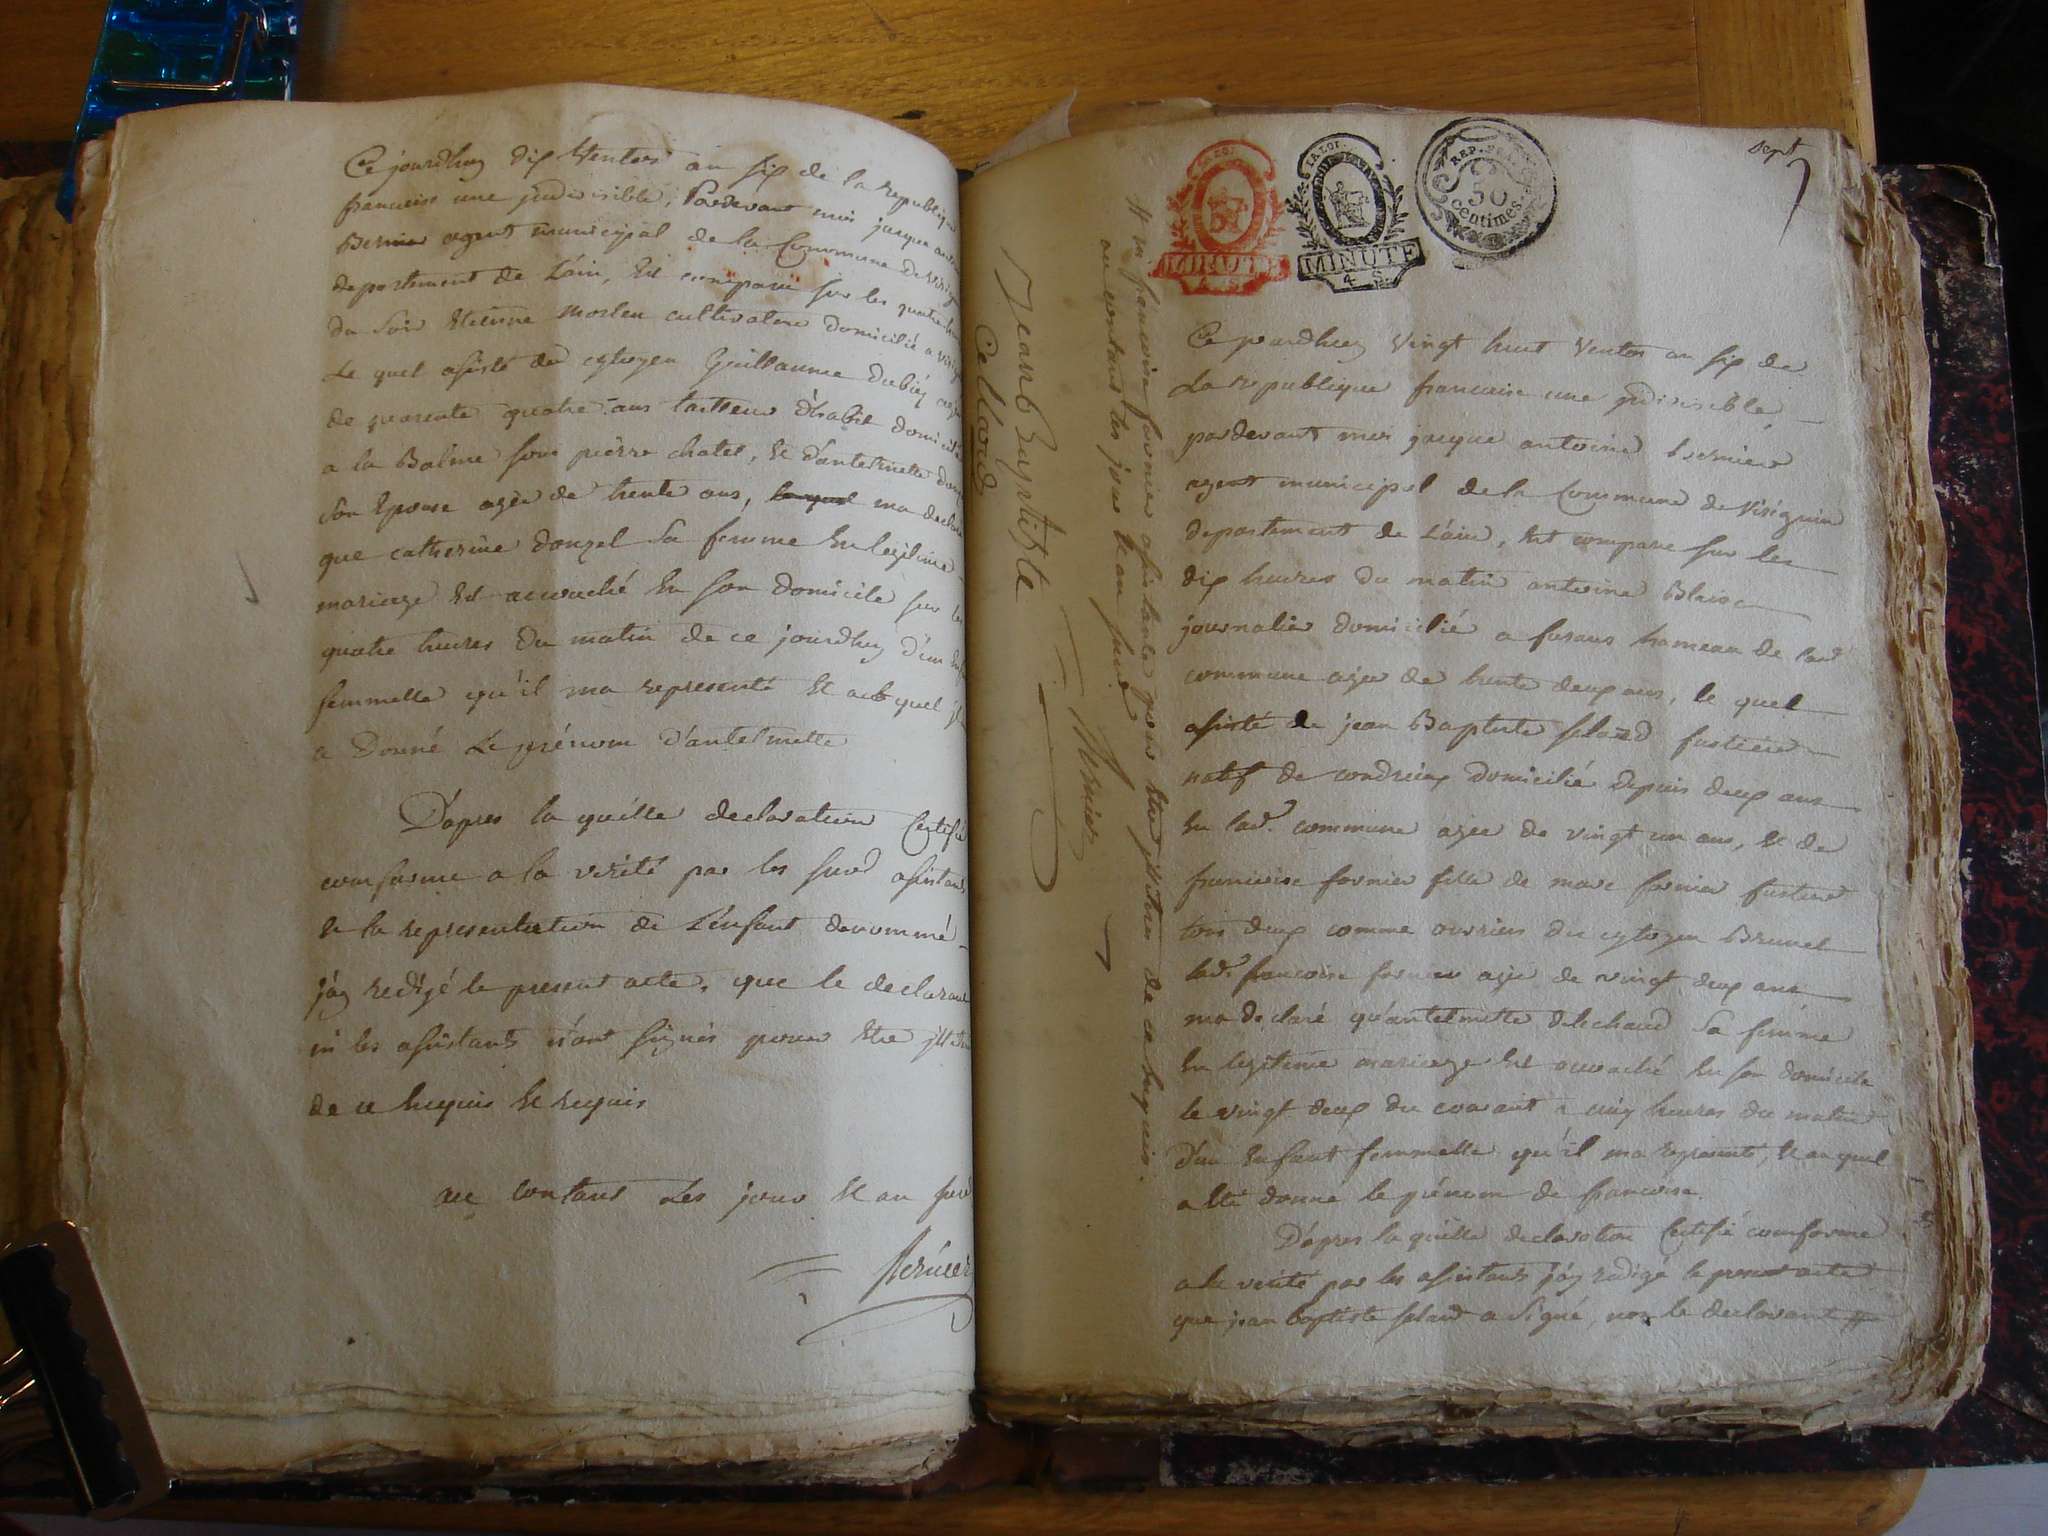 Ce jourdhuy dix Ventos an six de la republique
francaise une indivisible, Pardevant moi jacque antoine
Bernier agent municipal de la Commune de Virig
departement de L'ain, Est comparu sur les quatre heures
du Soir Etienne cultivateur domicilié a Virig
Le quel assisté du cytoyen Guillaume Dubiez agé
de quarente quatre ans tailleur d'habit domicilié
a la Balme fom pierre chatel, Et d'antelmette donzel
Son Epouse agée de trente ans, ma declaré
que catherine donzel Sa femme En legitime
mariage Est accouché En son domicile sur les
quatre heures du matin de ce jourdhuy d'un Enfant
femmelle qu'il ma representé Et auquel il
a Donné Le prénom d'antelmette
D'apres la quelle declaration Certifié
conforme a la verité par les susd assistants
Et la representation de L'enfant denommé
j'ay redigé le present acte, que le declarant
ni les assistants n'ont signés pour Etre illitérés
de ce Enquis Et requis
au contant Les jour Et an susd
Bernier
Sept
7
A LA LOI
MINUTE
4 S.
A LA LOI
MINUTE
4 S.
REP. FRA.
50
centimes
Ce jourdhuy Vingt huit Ventos an six de
La republique francaise une indivisible
pardevant moi jacque antoine Bernier
agent municipal de la Commune de Virignin
departement de L'ain, Est comparu sur les
dix heures du matin antoine Blanc
journalier domicilié a fusans hameau de lad
commune agée de trente deux ans, le quel
assisté de jean Baptiste fustier
natif de condrieux domicilié depuis deux ans
En lad. commune agée de vingt un ans, Et de
francoise fornier fille de marc fornier fustier
tous deux comme ouvriers du cytoyen Brunet
lad. francoise fornier agée de vingt deux ans
ma declaré qu'antelmette delechaud Sa femme
En legitime mariage Est accouché En son domicile
le vingt deux du courant a cinq heures du matin
d'un Enfant femmelle qu'il ma representé, Et auquel
a Eté donné le prénom de francoise.
D'apres la quelle declaration Certifié conforme
a la verité par les assistants j'ay redigé le present acte
que jean baptiste a Signé, non le declarant #
# ni francoise fornier assistante pour Etre illitérés de ce Enquis
au contant les jour Et an susd
Jean Baptiste
Cellard
Bernier